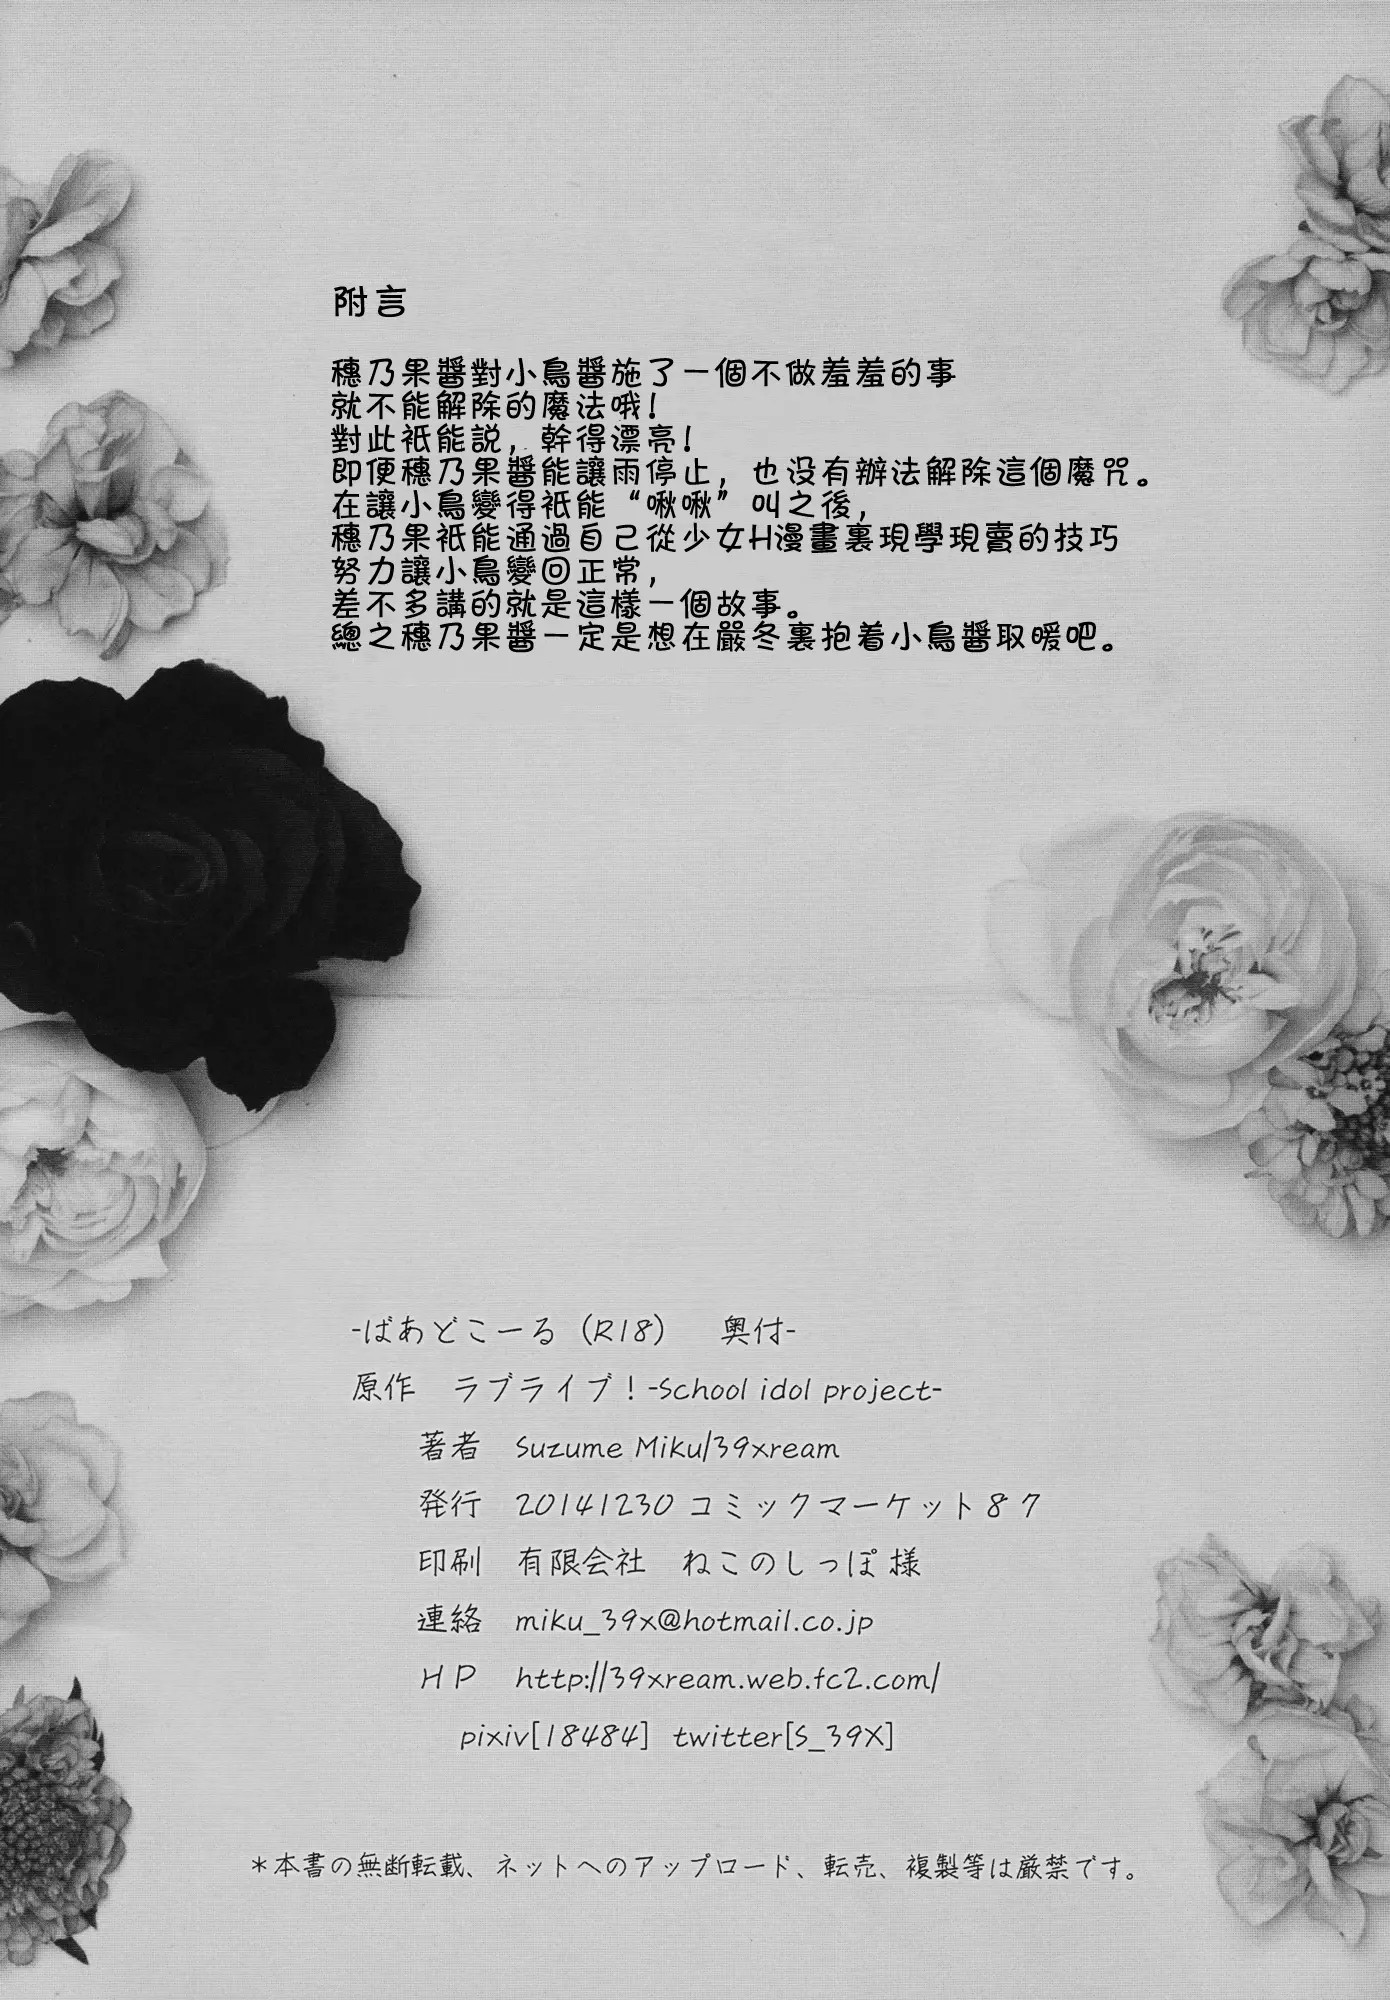 附言
穗乃果醬對小鳥醬施了一個不做羞羞的事
就不能解除的魔法哦！
對此衹能説，幹得漂亮！
即便穗乃果醬能讓雨停止，也没有辦法解除這個魔咒。
在讓小鳥變得衹能“啾啾”叫之後，
穗乃果衹能通過自己從少女H漫畫裏現學現賣的技巧
努力讓小鳥變回正常，
差不多講的就是這樣一個故事。
總之穗乃果醬一定是想在嚴冬裏抱着小鳥醬取暖吧。
-ばあどこーる（R18）　奥付-
原作　ラブライブ！-School idol project-
著者　Suzume Miku/39xream
発行　20141230 コミックマーケット８７
印刷　有限会社　ねこのしっぽ 様
連絡　miku_39x@hotmail.co.jp
ＨＰ　http://39xream.web.fc2.com/
pixiv[18484]　twitter[S_39X]
＊本書の無断転載、ネットへのアップロード、転売、複製等は厳禁です。